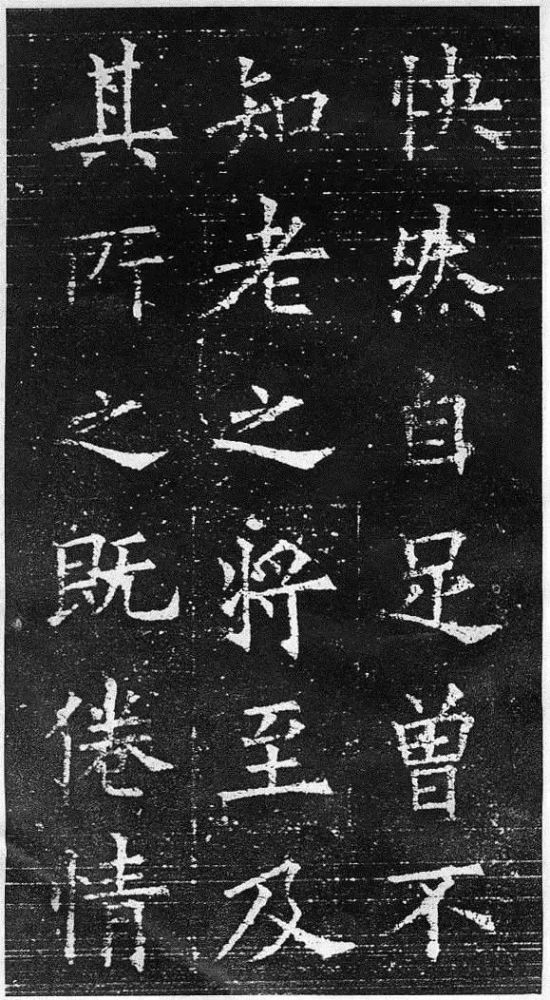 快然自足曽不
知老之將至及
其所之既倦情